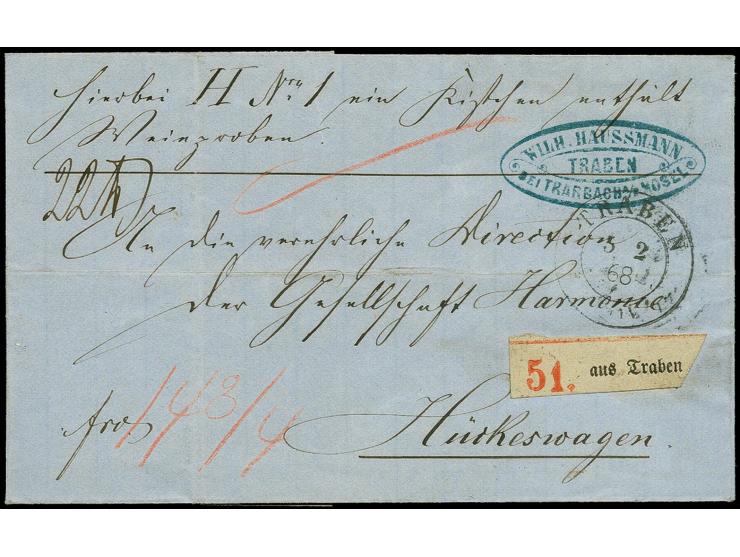 Hierbei H Nro 1 ein Kistchen enthält
Weinproben.
WILH. HAUSSMANN
TRABEN
BEI TRARBACH A/D MOSEL
22
TRABEN
3 2
68
An die verehrliche Direction
der Gesellschaft Harmonie
51. aus Traben
fro
148/4
Hückeswagen.